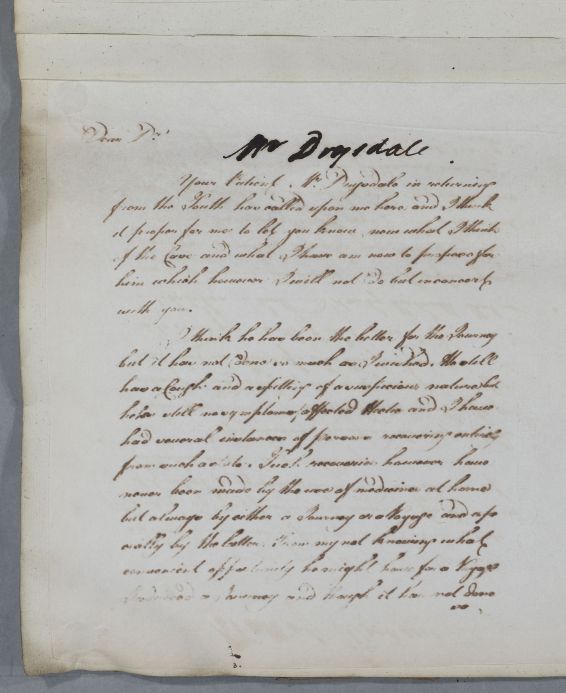 Dear Dr.
Mr Drysdale.
Your Patient Mr. Drysdale in returning
from the South has called upon me here and I think
it proper for me to let you know now what I think
of the Case and what I have am now to propose for
him which however I will not do but in concert
with you.
I think he has been the better for the Journey
but it has not done so much as I wished. He still
has a Cough and a spitting of a suspicious nature but
he has still no symptoms of Hectic and I have
had several instances of persons recovering entirely
from such a state. Such recoveries however have
never been made by the use of medicines at home
but always by either a Journey or a Voyage and espe
cially by the latter. From my not knowing what
convenient opportunity he might have for a Voyage
I a Journey and though it has not done
so